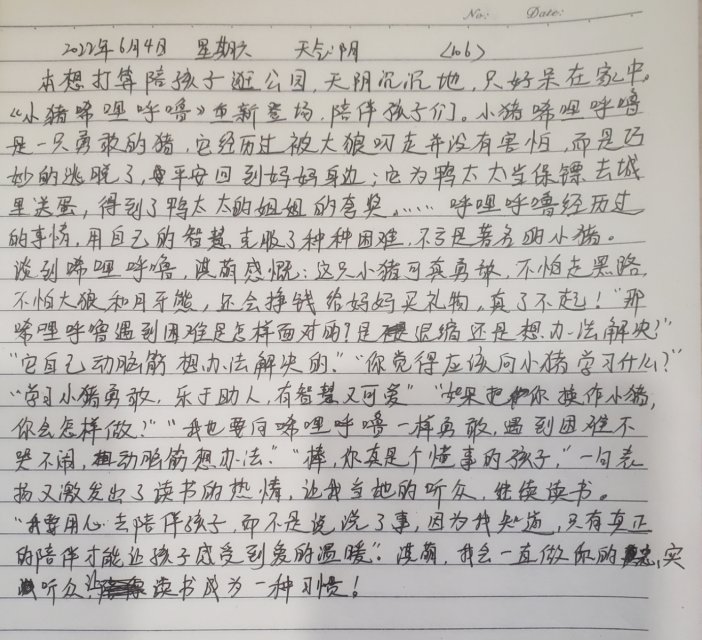 No: Date:
2022年6月4日 星期六 天气:阴 (106)
本想打算陪孩子逛公园,天阴沉沉地,只好呆在家中。
《小猪唏哩呼噜》重新登场,陪伴孩子们。小猪唏哩呼噜
是一只勇敢的猪,它经历过被大狼叼走并没有害怕,而是巧
妙的逃脱了,平安回到妈妈身边;它为鸭太太当保镖去城
里送蛋,得到了鸭太太的姐姐的夸奖。…… 呼哩呼噜经历过
的事情,用自己的智慧克服了种种困难,不亏是著名的小猪。
谈到唏哩呼噜,淇萌感慨:这只小猪可真勇敢,不怕走黑路,
不怕大狼和月牙熊,还会挣钱给妈妈买礼物,真了不起!“那
唏哩呼噜遇到困难是怎样面对的?是退缩还是想办法解决?”
“它自己动脑筋想办法解决的。”“你觉得应该向小猪学习什么?”
“学习小猪勇敢,乐于助人,有智慧又可爱”“如果把你换作小猪,
你会怎样做?”“我也要向唏哩呼噜一样勇敢,遇到困难不
哭不闹,动脑筋想办法。”“棒,你真是个懂事的孩子,”一句表
扬又激发出了读书的热情,让我当她的听众,继续读书。
“我要用心去陪伴孩子,而不是说说了事,因为我知道,只有真正
的陪伴才能让孩子感受到爱的温暖”。淇萌,我会一直做你的忠实
听众,让读书成为一种习惯!